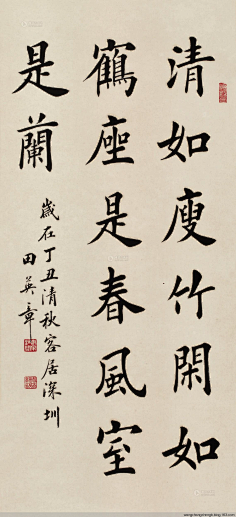 清如瘦竹閑如
鶴座是春風室
是蘭
歲在丁丑清秋客居深圳
田英章